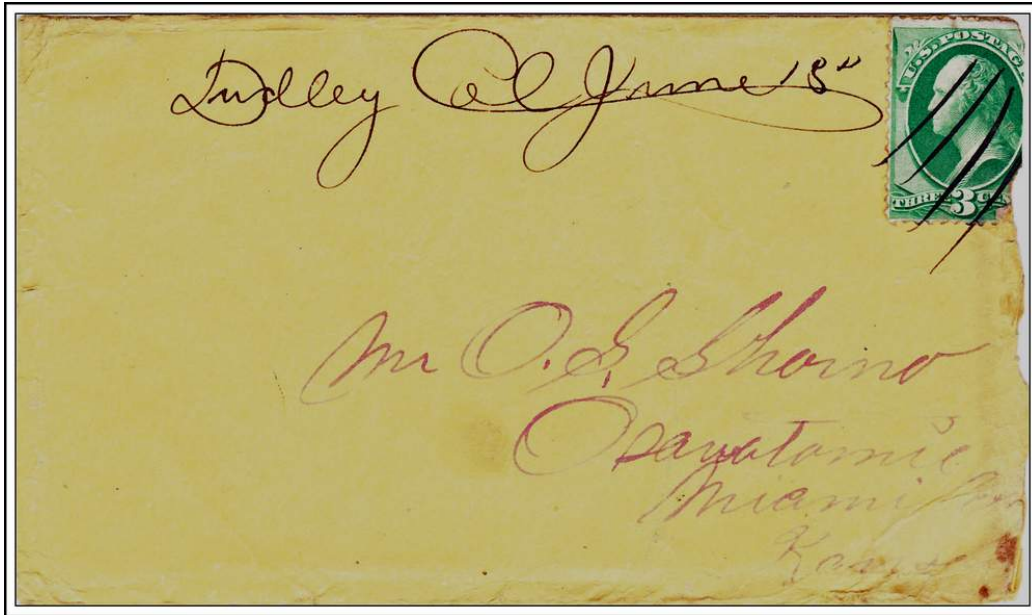 Dudley Col June 18"
U.S. POSTAGE
THREE 3 CE
Mr O. S. Shoino
Osawatomie
Miami
Kans